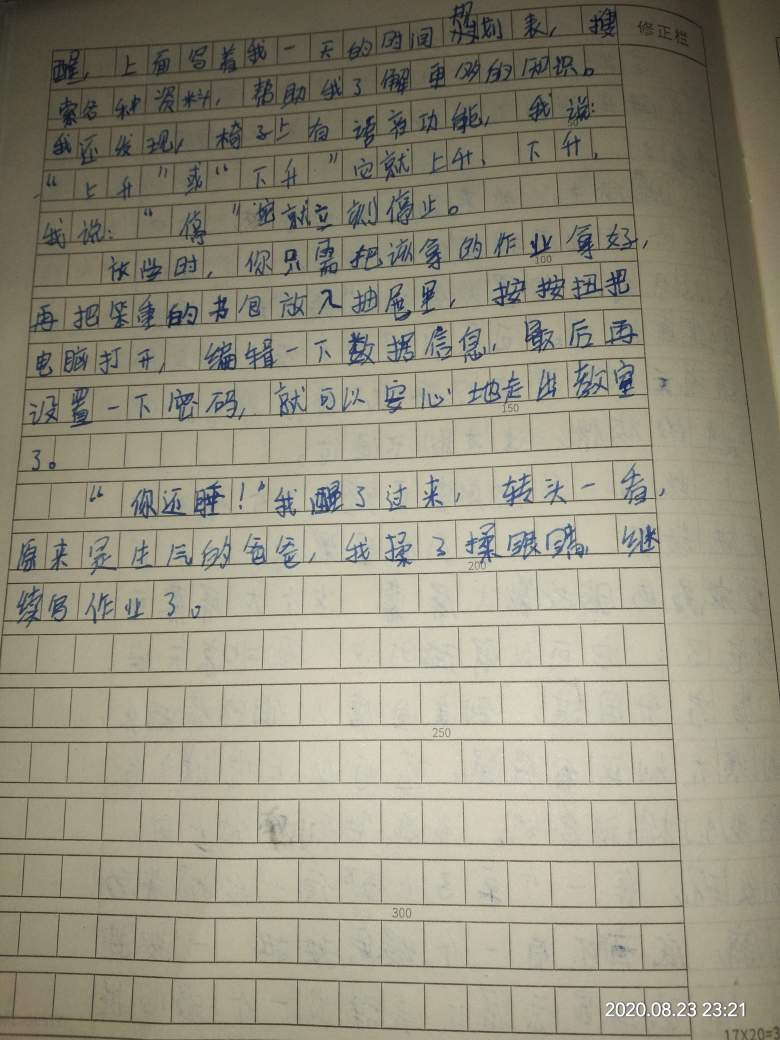 醒，上面写着我一天的时间规划表，搜
修正栏
索各种资料，帮助我了解更多的知识。
我还发现，椅子上有语音功能，我说：
“上升”或“下升”它就上升、下升，
我说：“停”它就立刻停止。
放学时，你只需把该拿的作业拿好，
100
再把笨重的书包放入抽屉里，按按扭把
电脑打开，编辑一下数据信息，最后再
设置一下密码，就可以安心地走出教室
150
了。
“你还睡！”我醒了过来，转头一看，
原来是生气的爸爸，我揉了揉眼睛，继
200
续写作业了。
250
300
2020.08.23 23:21
17X20=3